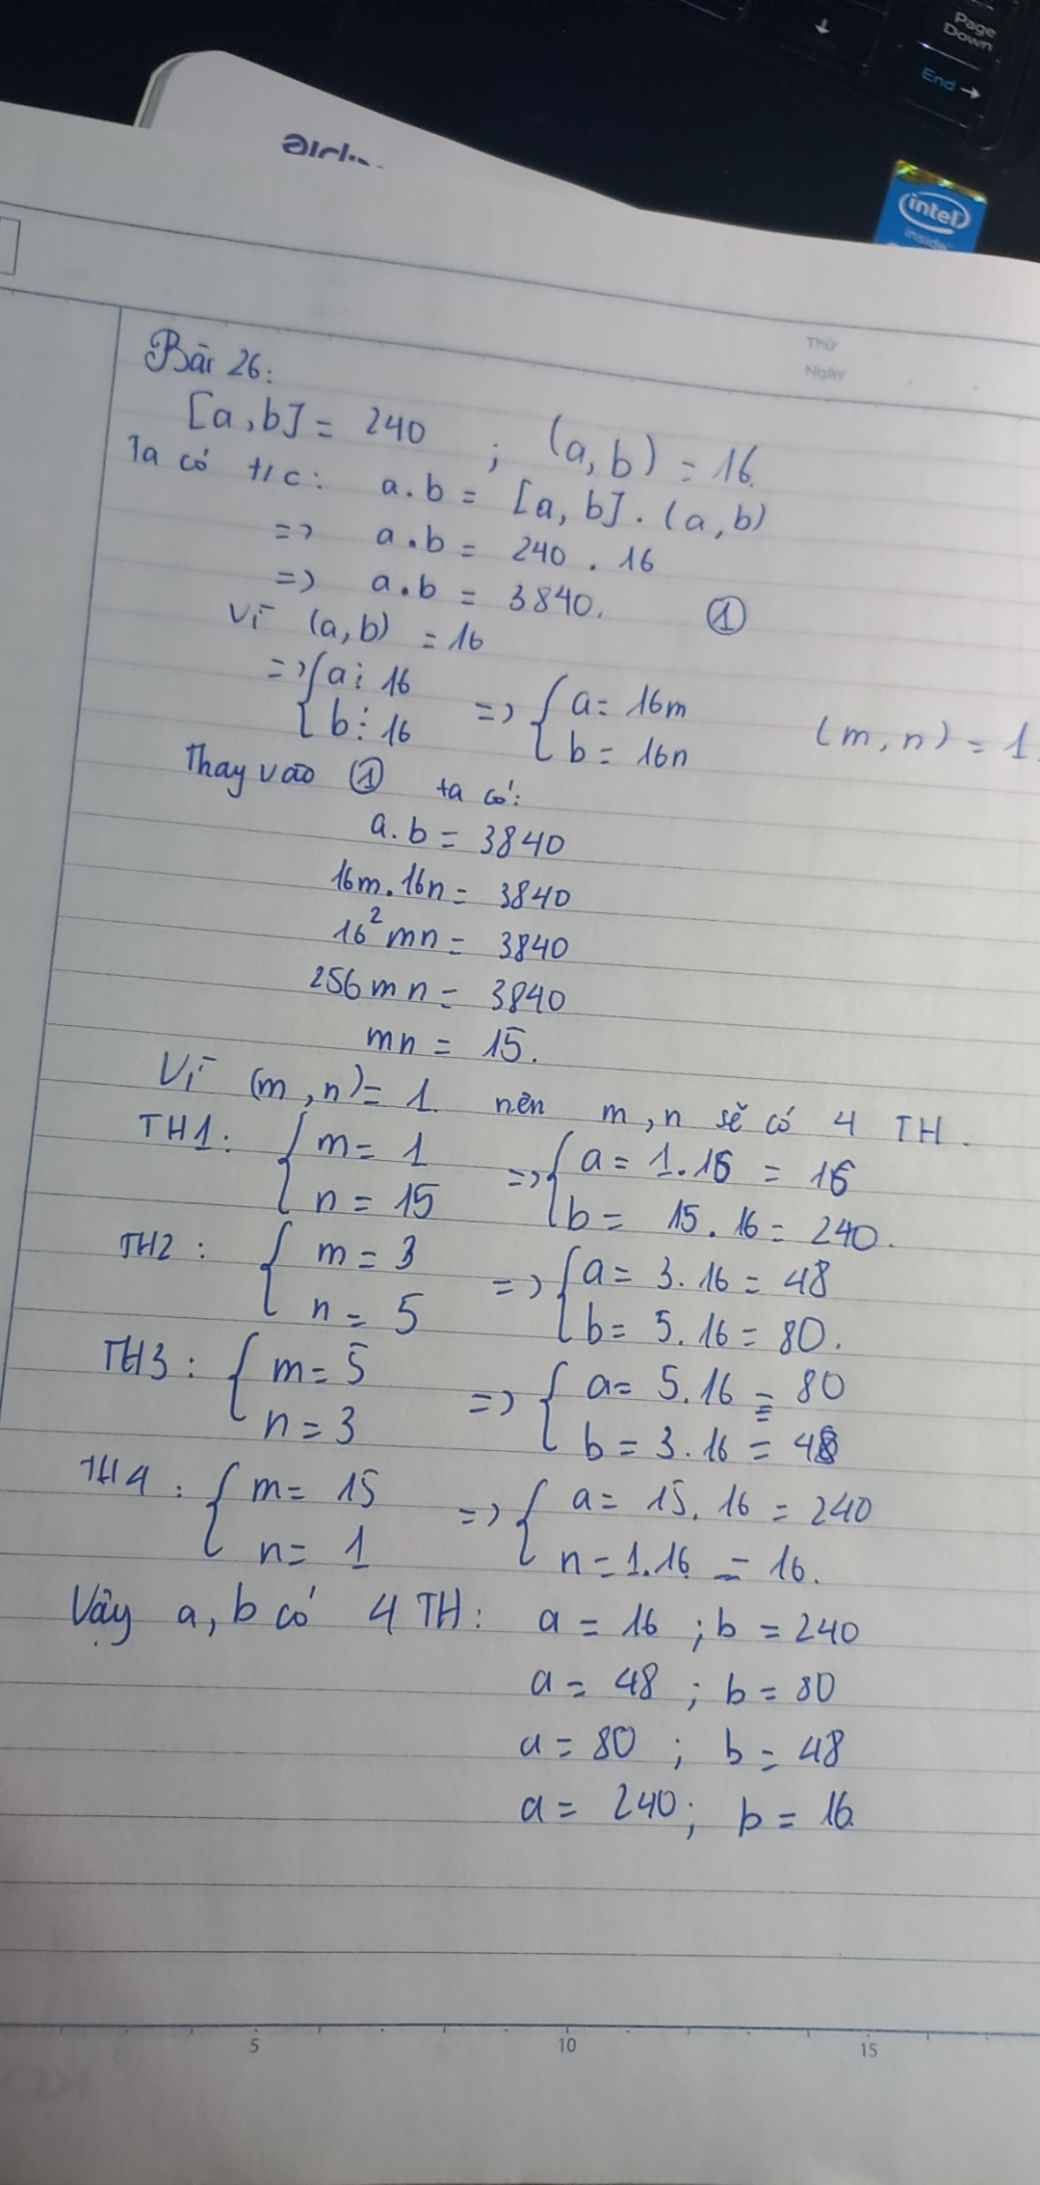 Page
Down
End →
intel
inside
Thứ
Ngày
Bài 26:
[a,b] = 240 ; (a,b) = 16.
Ta có t/c: a.b = [a,b].(a,b)
=> a.b = 240 . 16
=> a.b = 3840. ①
Vì (a,b) = 16
=> { a ⋮ 16 => { a = 16m (m,n) = 1.
b ⋮ 16 b = 16n
Thay vào ① ta có:
a.b = 3840
16m.16n = 3840
16²mn = 3840
256mn = 3840
mn = 15.
Vì (m,n) = 1. nên m,n sẽ có 4 TH.
TH1: { m = 1 => { a = 1.16 = 16
n = 15 b = 15.16 = 240.
TH2: { m = 3 => { a = 3.16 = 48
n = 5 b = 5.16 = 80.
TH3: { m = 5 => { a = 5.16 = 80
n = 3 b = 3.16 = 48
TH4: { m = 15 => { a = 15.16 = 240
n = 1 n = 1.16 = 16.
Vậy a,b có 4 TH: a = 16 ; b = 240
a = 48 ; b = 80
a = 80 ; b = 48
a = 240; b = 16.
5 10 15